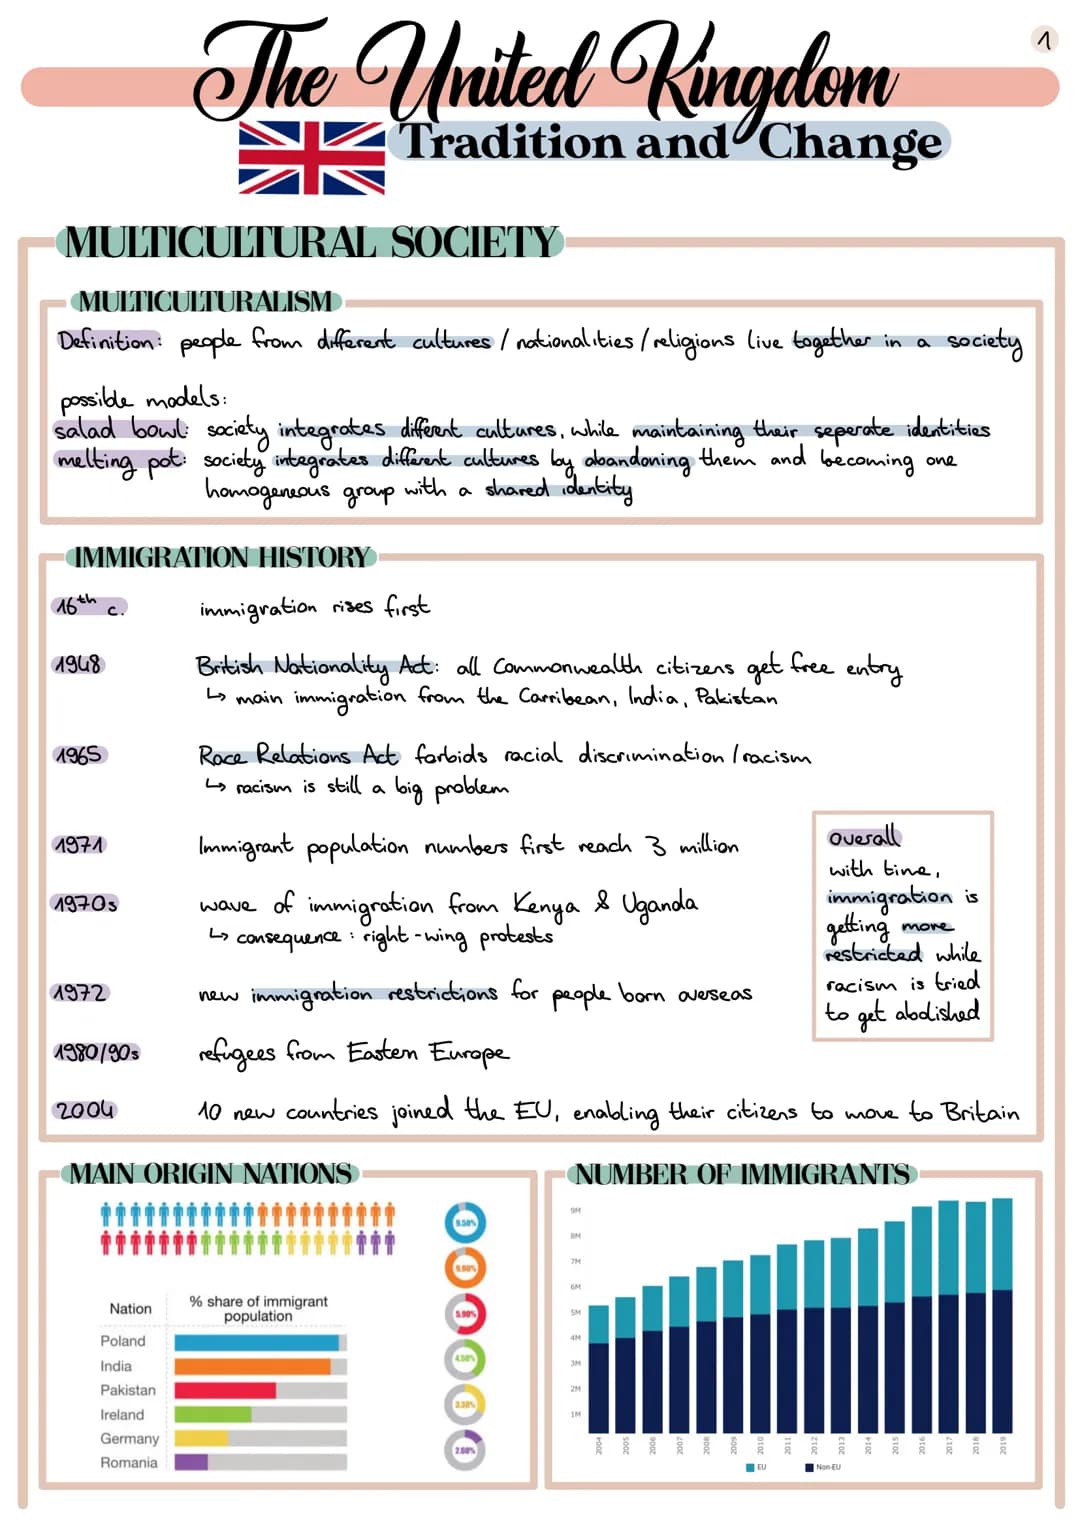 The United Kingdom
1
Tradition and Change
MULTICULTURAL SOCIETY
MULTICULTURALISM
Definition: people from different cultures / nationalities / religions live together in a society
possible models:
salad bowl: society integrates different cultures, while maintaining their seperate identities
melting pot: society integrates different cultures by abandoning them and becoming one
homogeneous group with a shared identity
IMMIGRATION HISTORY
16th c. immigration rises first
1948 British Nationality Act: all Commonwealth citizens get free entry
↳ main immigration from the Carribean, India, Pakistan
1965 Race Relations Act forbids racial discrimination / racism
↳ racism is still a big problem
1971 Immigrant population numbers first reach 3 million
1970s wave of immigration from Kenya & Uganda
↳ consequence: right-wing protests
1972 new immigration restrictions for people born overseas
1980/90s refugees from Eastern Europe
2004 10 new countries joined the EU, enabling their citizens to move to Britain
overall
with time,
immigration is
getting more
restricted while
racism is tried
to get abolished
MAIN ORIGIN NATIONS
9.50%
9.00%
5.90%
4.50%
3.30%
2.60%
Nation
% share of immigrant
population
Poland
India
Pakistan
Ireland
Germany
Romania
NUMBER OF IMMIGRANTS
9M
8M
7M
6M
5M
4M
3M
2M
1M
2004 2005 2006 2007 2008 2009 2010 2011 2012 2013 2014 2015 2016 2017 2018 2019
EU Non-EU